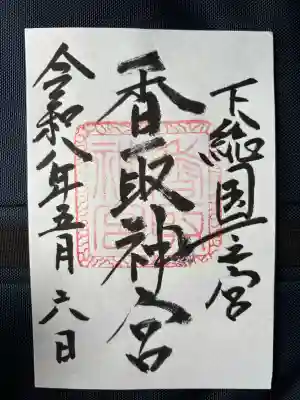 下総国一之宮
香取神宮
令和八年五月六日